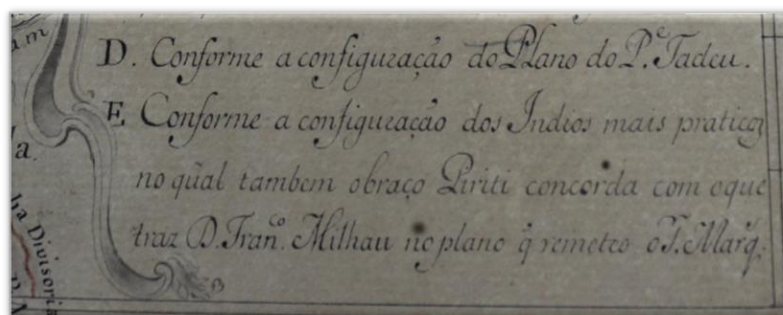 am
D. Conforme a configuração do Plano do P.e Tadeu.
E Conforme a configuração dos Indios mais praticos
a.
no qūal tambem obraço Piriti concorda com oque
ha Divisoria
traz D. Fran.co Milhau no plano q̃ remeteo o T. Marq.